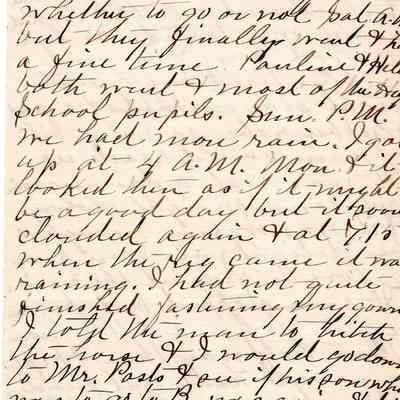 whether to go or not Sat. A.M.
but they finally went & h
a fine time. Pauline & Hel
both went & most of the Hig
School pupils. Sun. P.M.
we had more rain. I got
up at 4 A.M. Mon. & it
looked then as if it might
be a good day but it soon
clouded again & at 7.15
when the rig came it wa
raining. I had not quite
finished fastening my gown
I told the man to hitch
the horse & I would go down
to Mr. Posts & see if his son who
was to go to